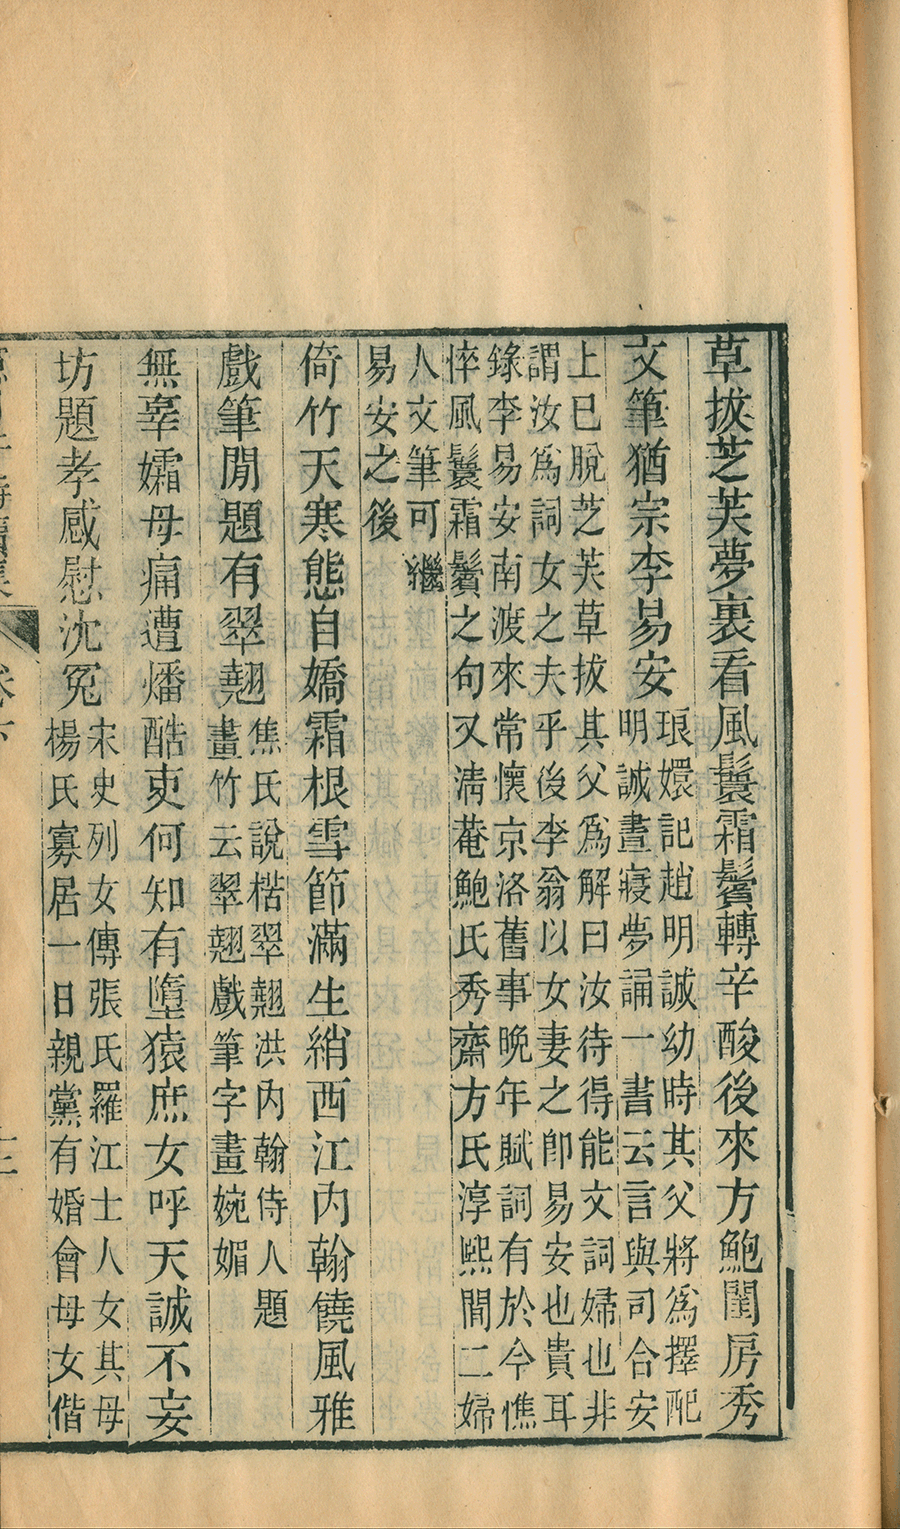 草拔芝芙夢裏看風鬟霜鬢轉辛酸後來方鮑閨房秀
文筆猶宗李易安
琅嬛記趙明誠幼時其父將爲擇配
明誠晝寢夢誦一書云言與司合安
上已脫芝芙草拔其父爲解曰汝待得能文詞婦也非
謂汝爲詞女之夫乎後李翁以女妻之卽易安也貴耳
錄李易安南渡來常懷京洛舊事晚年賦詞有於今憔
悴風鬟霜鬢之句又淸菴鮑氏秀齋方氏淳熙間二婦
人文筆可繼
易安之後
倚竹天寒態自嬌霜根雪節滿生綃西江內翰饒風雅
戲筆閒題有翠翹
焦氏說楛翠翹洪內翰侍人題
畫竹云翠翹戲筆字畫婉媚
無辜孀母痛遭燔酷吏何知有墮猿庶女呼天誠不妄
坊題孝感慰沈冤
宋史列女傳張氏羅江士人女其母
楊氏寡居一日親黨有婚會母女偕